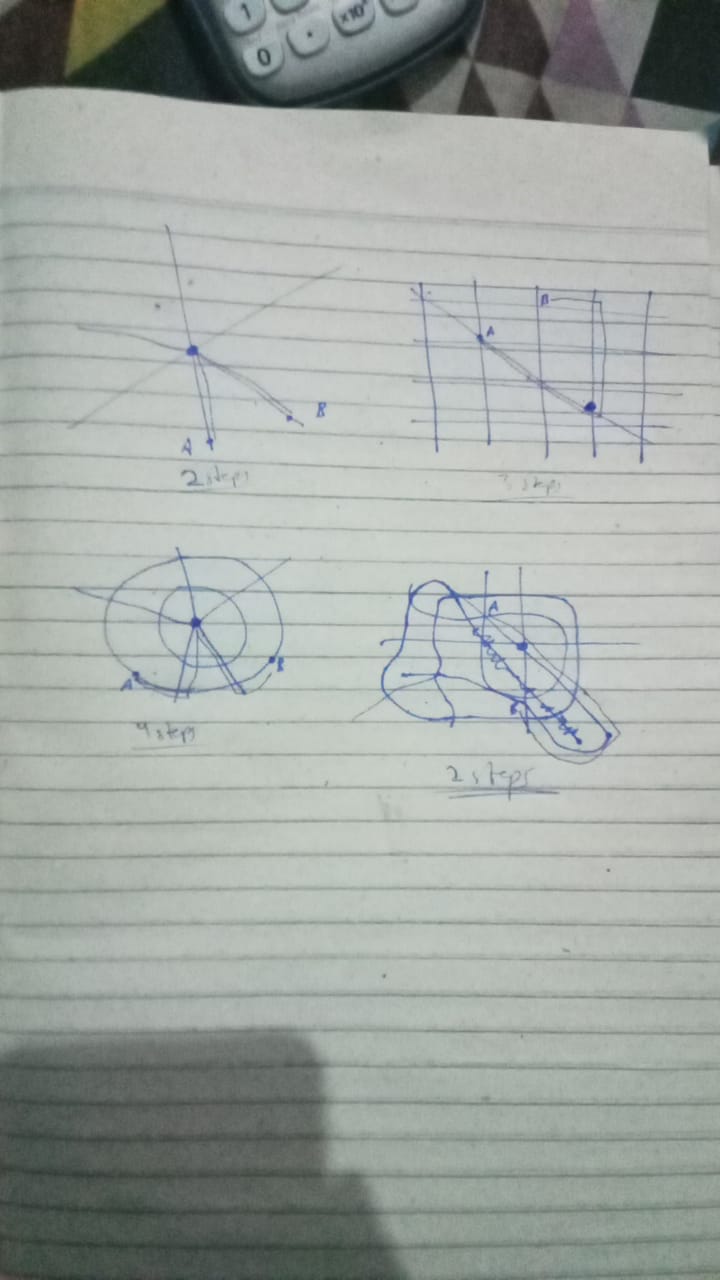 1
0 · ×10ˣ
B
A
B
A
2 steps
3 steps
A
B
C
4 steps
2 steps